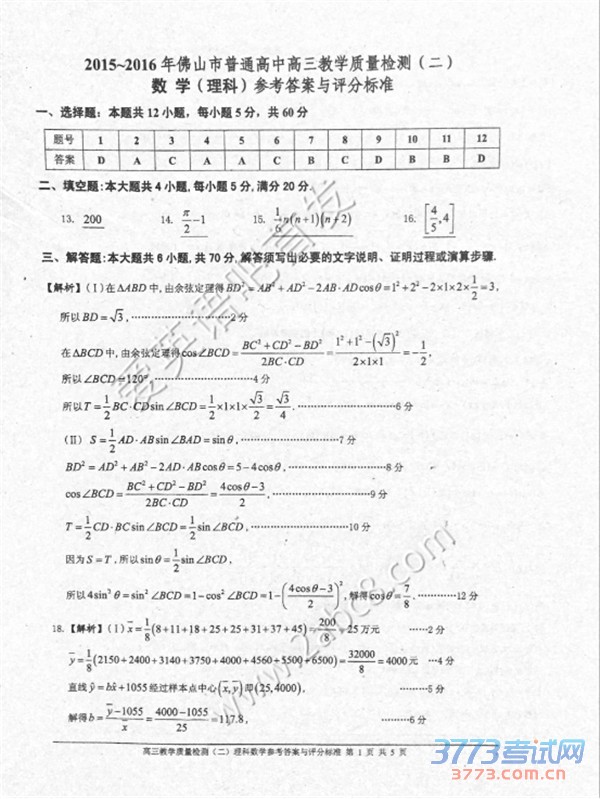 2015~2016年佛山市普通高中高三教学质量检测（二）
数 学（理科）参考答案与评分标准
一、选择题：本题共12小题，每小题5分，共60分
题号 1 2 3 4 5 6 7 8 9 10 11 12
答案 D A C A A C B C D B B D
二、填空题:本大题共4小题,每小题5分,满分20分.
13. 200 14. π/2−1 15. 1/6 n(n+1)(n+2) 16. [4/5,4]
三、解答题:本大题共6小题,共70分,解答须写出必要的文字说明、证明过程或演算步骤.
【解析】(Ⅰ)在ΔABD中,由余弦定理得BD²=AB²+AD²−2AB·AD cosθ=1²+2²−2×1×2×1/2=3,
所以BD=√3,………………2分
在ΔBCD中,由余弦定理得cos∠BCD=(BC²+CD²−BD²)/(2BC·CD)=(1²+1²−(√3)²)/(2×1×1)=−1/2,
所以∠BCD=120°,………………4分
所以T=1/2 BC·CD sin∠BCD=1/2×1×1×√3/2=√3/4.………………6分
(Ⅱ) S=1/2 AD·AB sin∠BAD=sinθ,………………7分
BD²=AD²+AB²−2AD·AB cosθ=5−4cosθ,………………8分
cos∠BCD=(BC²+CD²−BD²)/(2BC·CD)=(4cosθ−3)/2,………………9分
T=1/2 CD·BC sin∠BCD=1/2 sin∠BCD,………………10分
因为S=T,所以sinθ=1/2 sin∠BCD,
所以4sin²θ=sin²∠BCD=1−cos²∠BCD=1−((4cosθ−3)/2)²,解得cosθ=7/8.…………12分
18.【解析】(Ⅰ) x̄=1/8(8+11+18+25+25+31+37+45)=200/8=25万元 ……2分
ȳ=1/8(2150+2400+3140+3750+4000+4560+5500+6500)=32000/8=4000元 …4分
直线ŷ=b̂x+1055经过样本点中心(x̄,ȳ)即(25,4000), ………5分
解得b̂=(ȳ−1055)/x̄=(4000−1055)/25=117.8, ………6分
高三教学质量检测（二）理科数学参考答案与评分标准 第1页 共5页
爱英语吧首发
www.2abc8.com
3773考试网
www.3773.com.cn